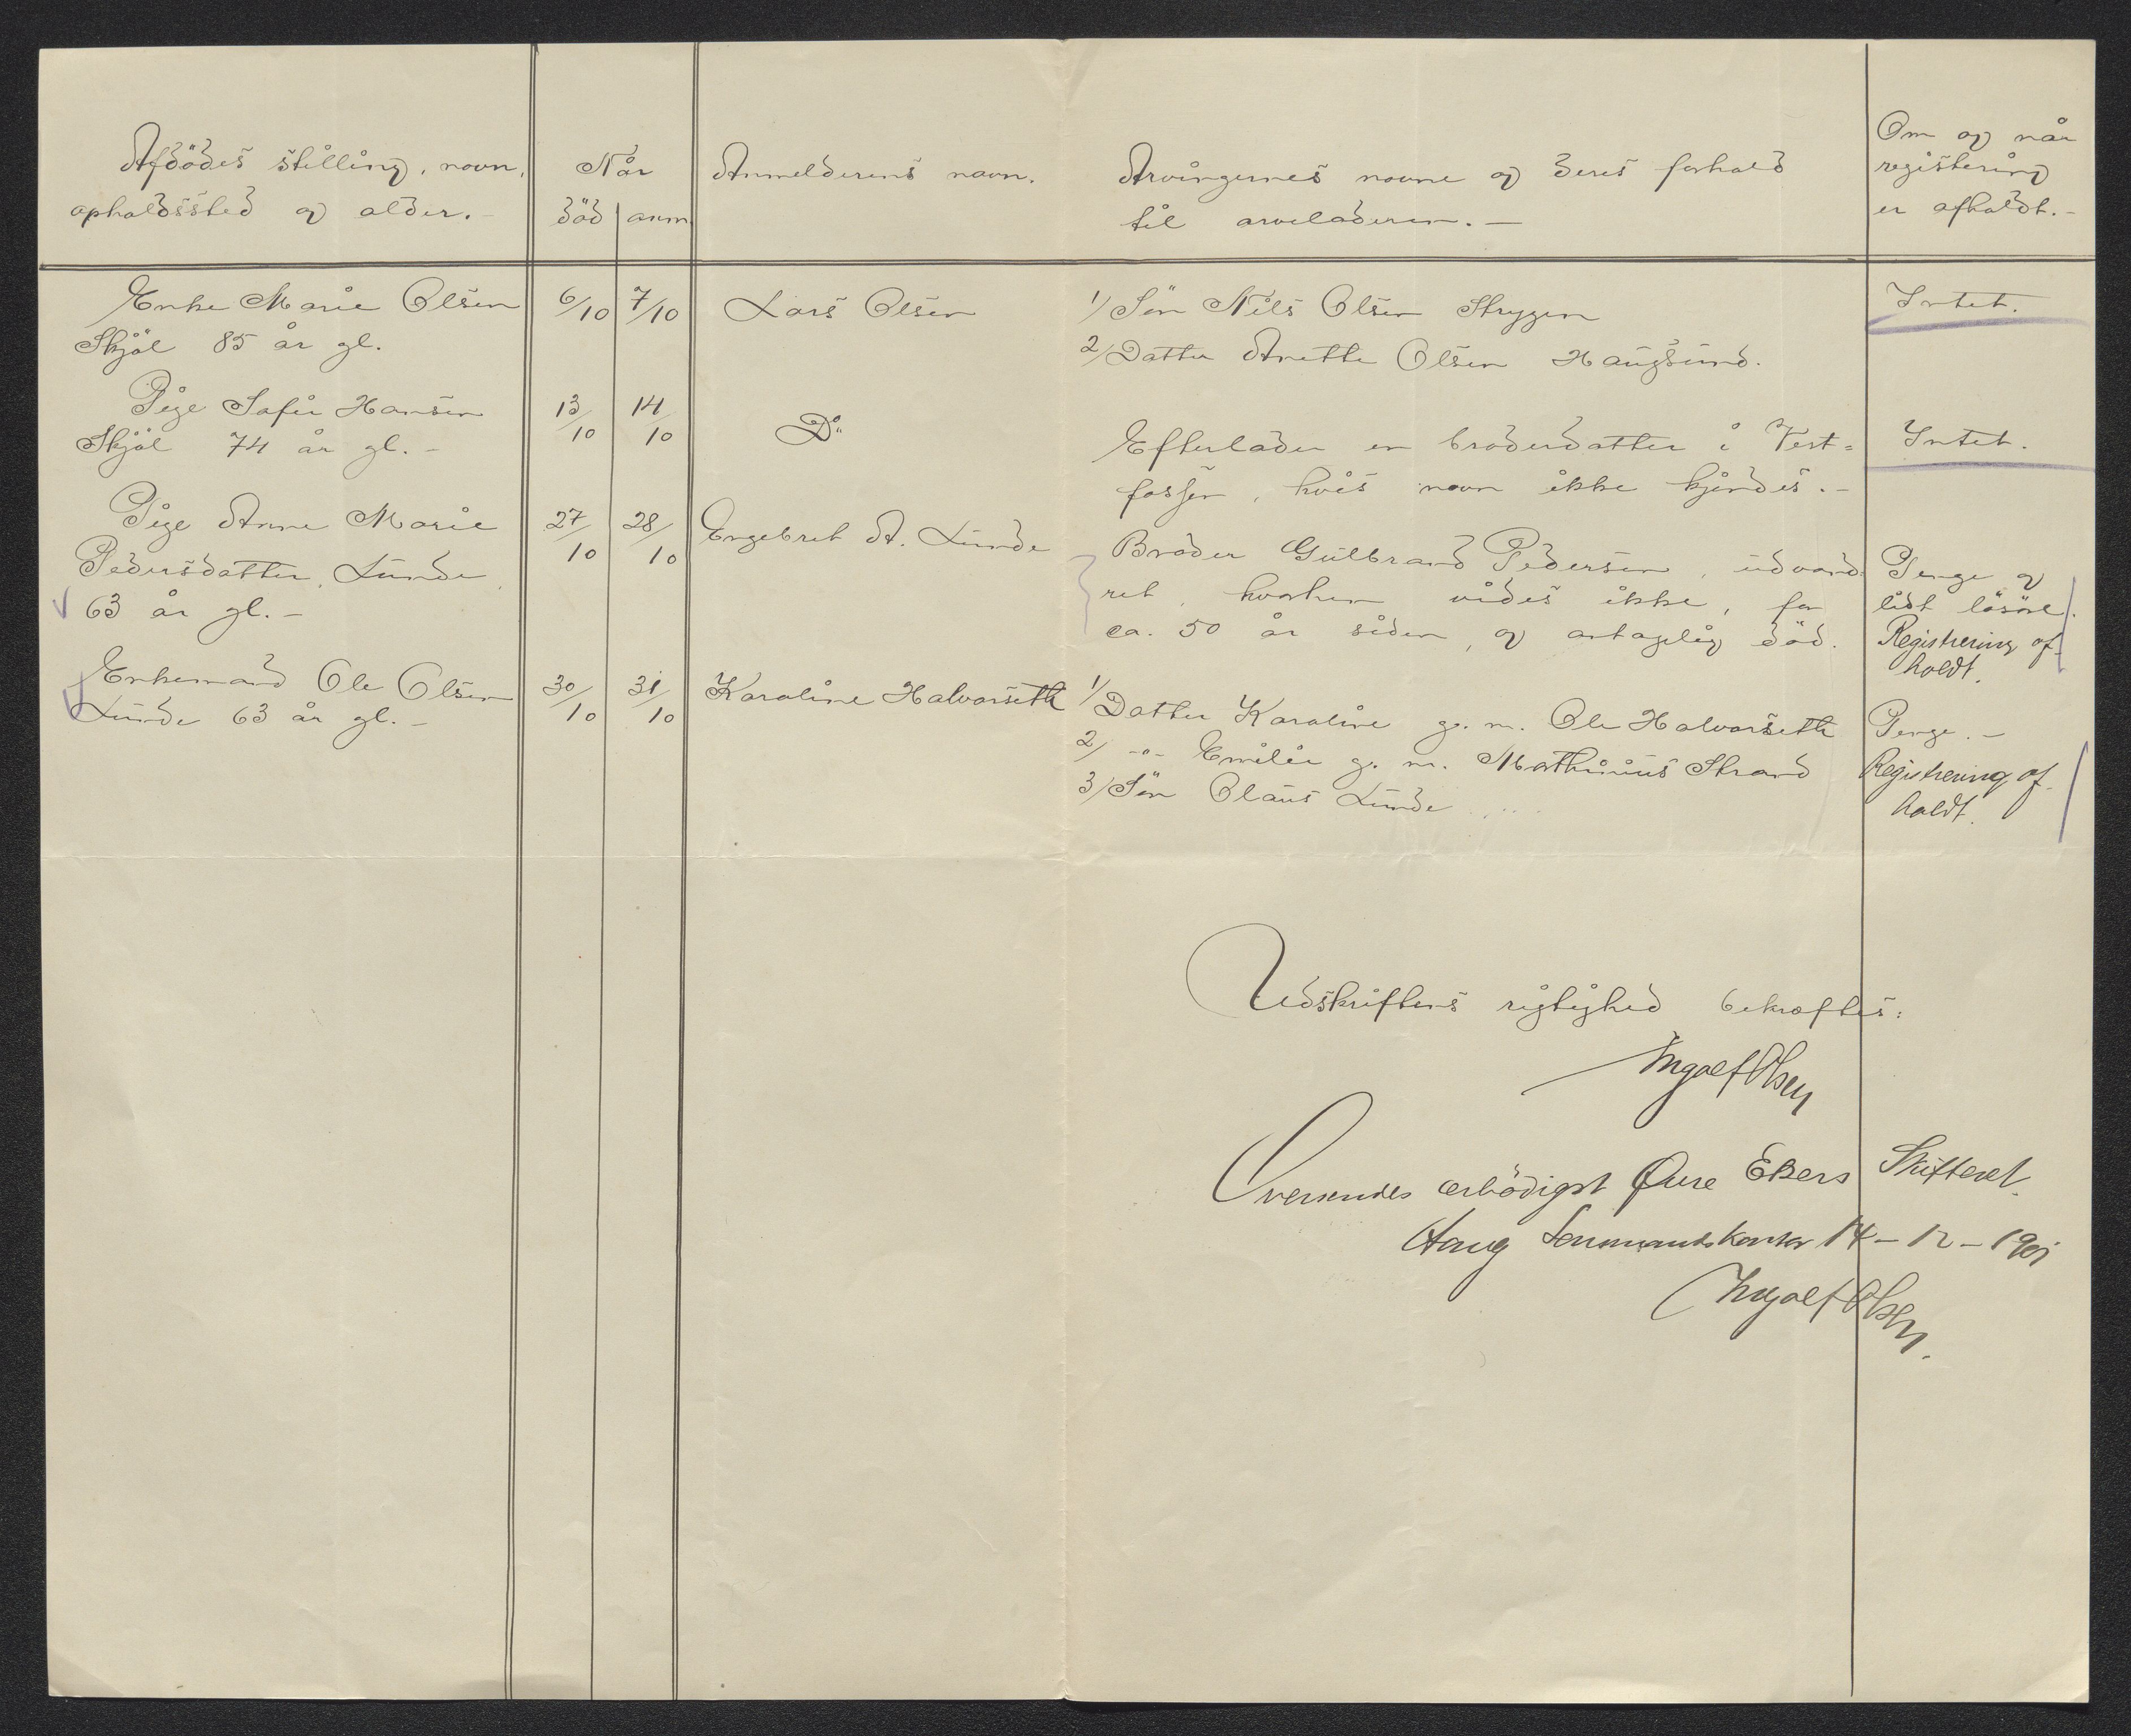 Afdødes stilling, navn,
opholdssted og alder. -
Når
død anm.
Anmelderens navn.
Arvingernes navne og deres forhold
til arveladeren. -
Om og når
registering
er afholdt. -
Enke Marie Olsen
Skjøl 85 år gl.
6/10 7/10
Lars Olsen
1/ Søn Nils Olsen Strygen
2/ Datter Anette Olsen Haugsund.
Intet.
Pige Sofie Hansen
Skjøl 74 år gl. -
13/10 14/10
Do
Efterlader en broderdatter i Vest=
fossen, hvis navn ikke kjendes. -
Intet.
Pige Anne Marie
Pedersdatter, Lunde,
63 år gl. -
27/10 28/10
Engebret A. Lunde
Broder Gulbrand Pedersen, udvand-
ret, hvorhen vides ikke, for
ca. 50 år siden, og antagelig død.
Penge og
lidt løsøre.
Registrering af-
holdt.
Enkemand Ole Olsen
Lunde 63 år gl. -
30/10 31/10
Karoline Halvorseth
1/ Datter Karoline g. m. Ole Halvorseth
2/ -"- Emilie g. m. Mathinius Strand
3/ Søn Olaus Lunde
Penge. -
Registrering af-
holdt.
Udskriftens rigtighed bekræftes:
Ingolf Olsen
Oversendes ærbødigst Øvre Ekers Skifteret.
Haug Lensmandskontor 14-12-1901
Ingolf Olsen.